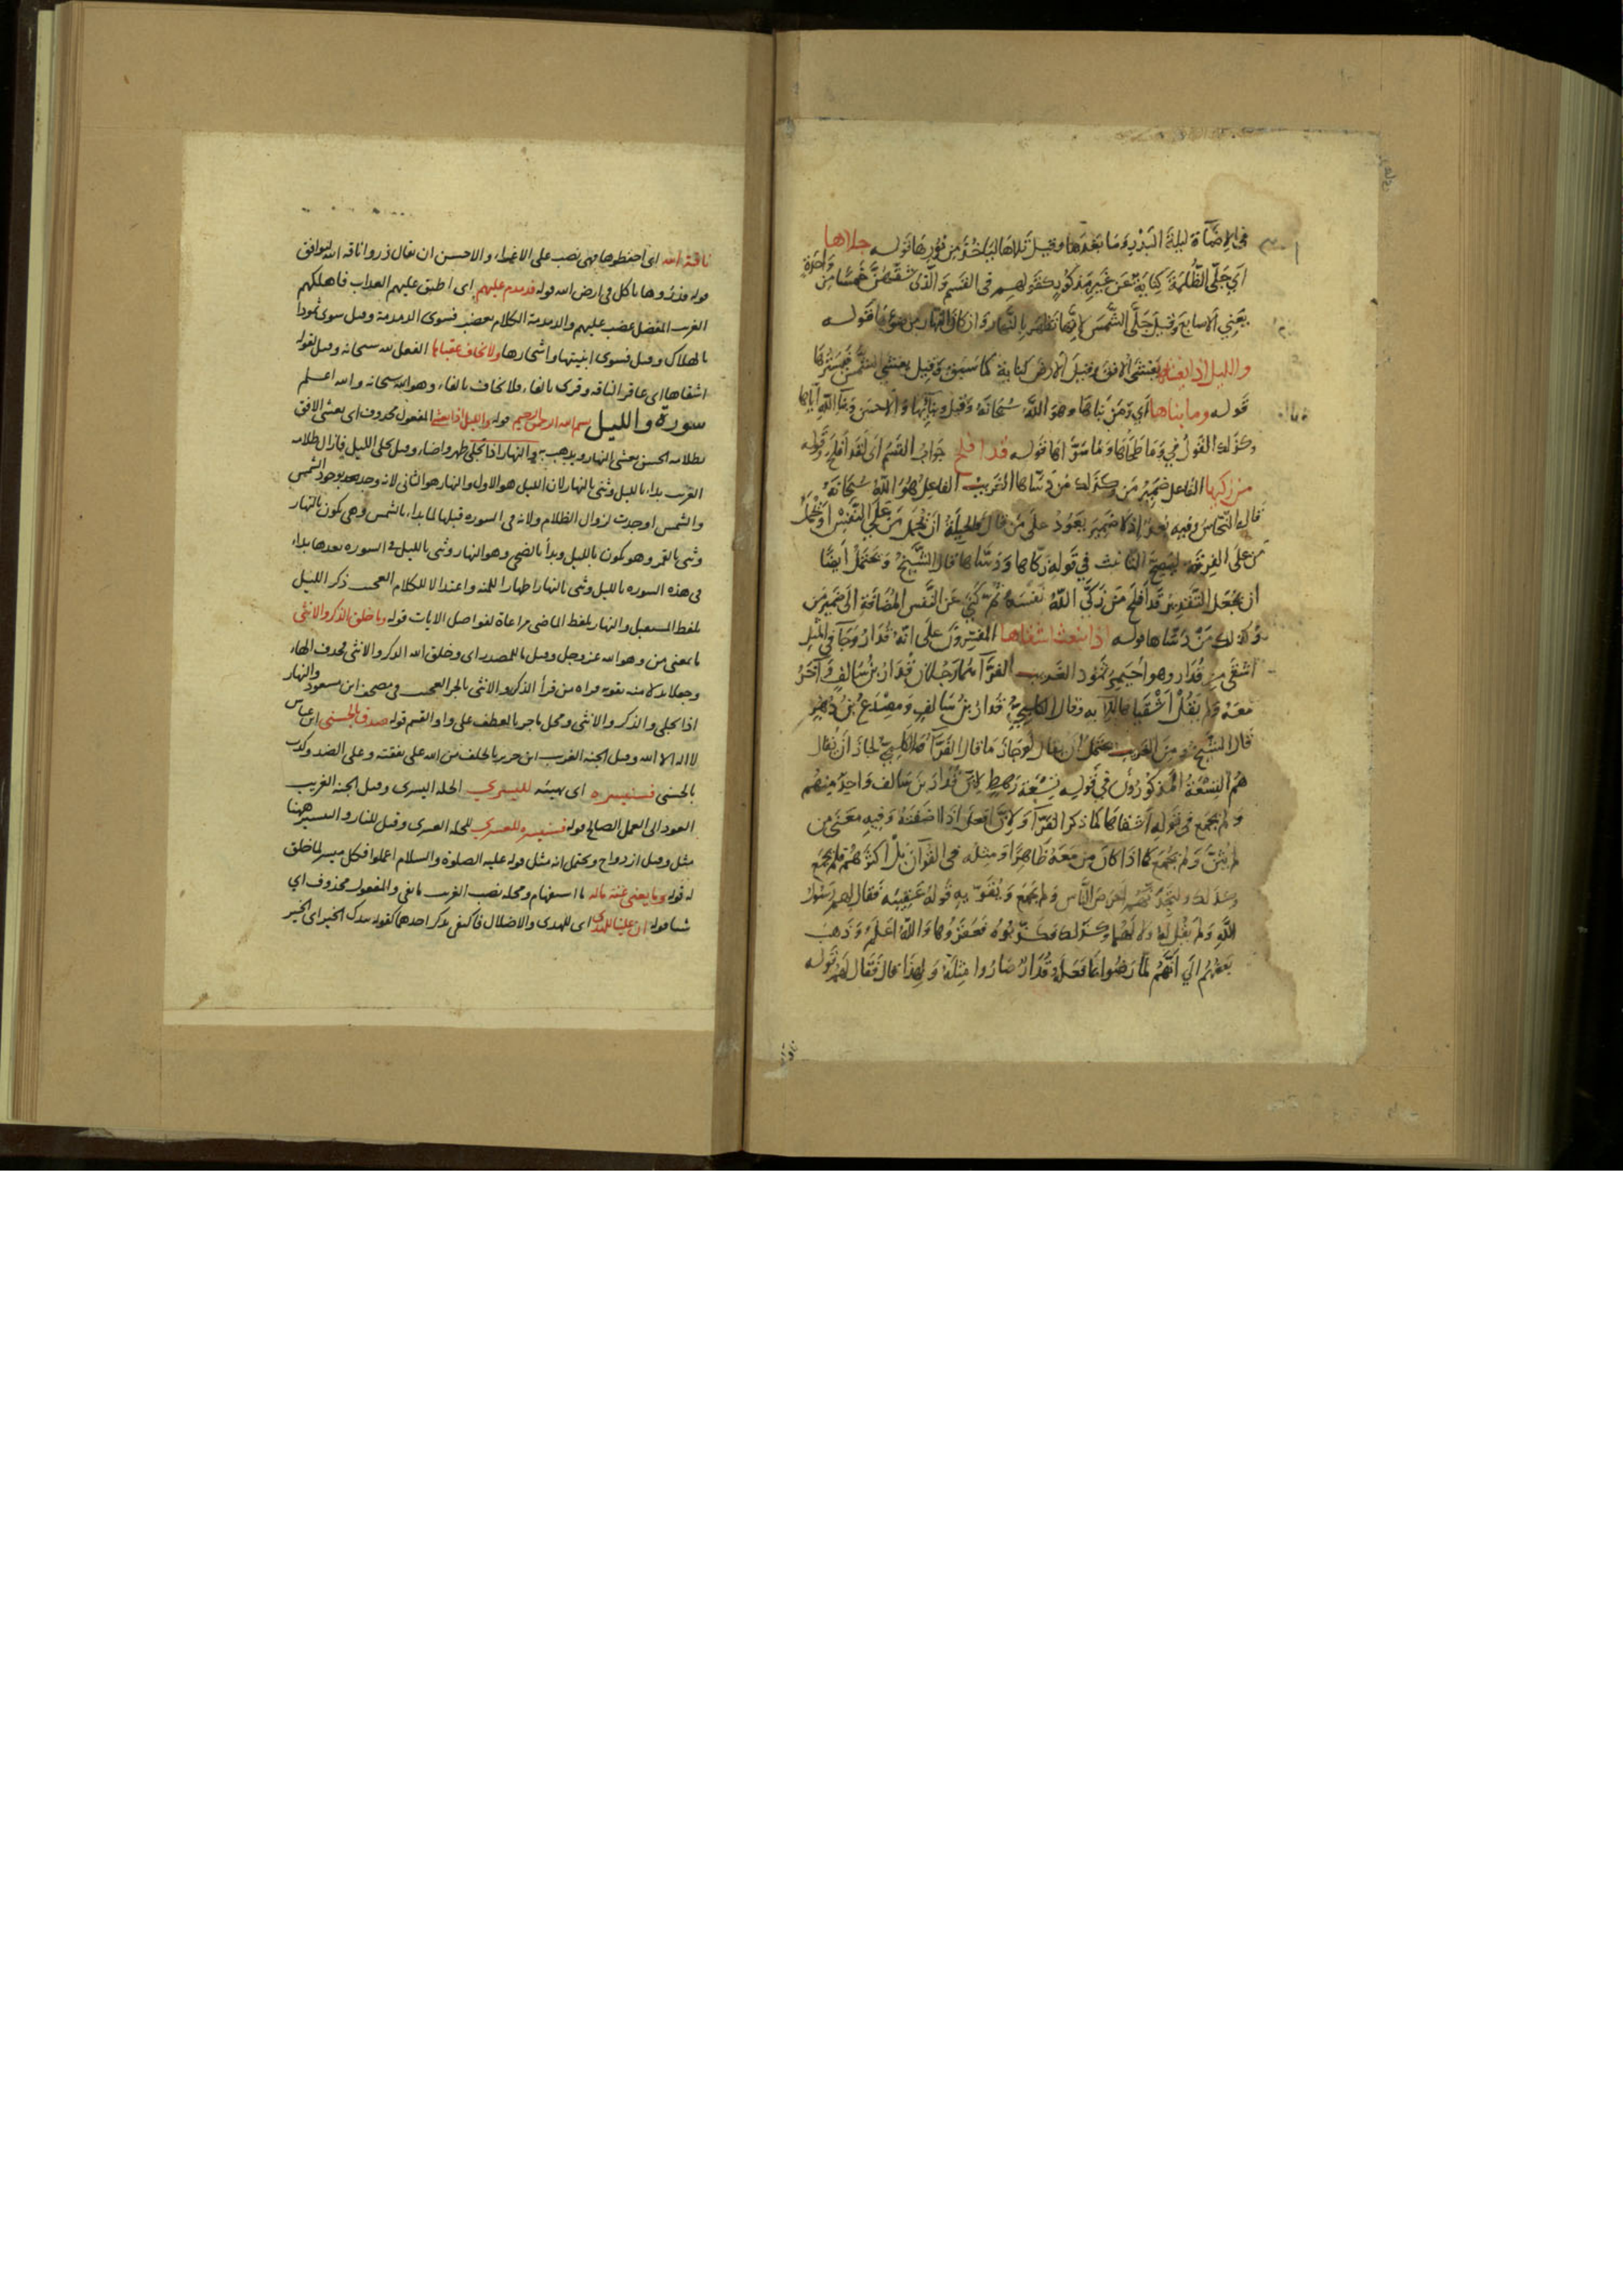 في الإضاءة ليلة البدر وما بعدها وقيل تلاها الياخذ من نورها قوله جلاها
أي جلى الظلمة كناية عن غير مذكور كقولهم في القسم والذي شقهن خمسا من واحدة
يعني الاصابع وقيل جلى الشمس لانها تظهر بالنهار وان كان النهار من ضوئها قوله
والليل اذا يغشاها يغشى الافق وقيل الارض كناية كما سبق وقيل يغشى الشمس فيسترها
قوله وما بناها أي ومن بناها وهو الله سبحانه وقيل وبنائها والاحسن وبناء الله اياها
وكذلك القول في وما طحاها وما سواها قوله قد افلح جواب القسم اي لقد افلح وقوله
من زكيها الفاعل ضمير من وكذلك من دساها الغريب الفاعل هو الله سبحانه
قال النحاس وفيه بعد اذ لا ضمير يعود على من قال والحيلة ان تحمل من على النفس او تحمل
من على الفرقة ليصح التانيث في قوله زكاها ودساها قال الشيخ ويحتمل أيضا
ان يجعل التقدير قد افلح من زكى الله نفسه ثم كنى عن النفس المضافة الى ضمير من
وكذلك من دساها قوله اذ انبعث اشقاها المفسرون على انه قدار وجاء في المثل
اشقى من قدار وهو احيمر ثمود الغريب الفراء هما رجلان قدار بن سالف وآخر
معه ولم يقل أشقياها للآية وقال الكلبي قدار بن سالف ومصدع بن دهر
قال الشيخ ومن الغريب يحتمل ان يقال لو جاز ما قال الفراء والكلبي لجاز أن يقال
هم التسعة المذكورون في قوله تسعة رهط لان قدار بن سالف واحد منهم
ولم يجمع في قوله أشقاها لما ذكر الفراء ولان افعل اذا اضفته وفيه معنى من
لم يثن ولم يجمع كما اذا كان من معه ظاهرا ومثله في القرآن بل اكثرهم فلم يجمع
وكذلك ولتجدنهم احرص الناس ولم يجمع ويقوي به قوله عقيبه فقال لهم رسول
الله ولم يقل له ولا لهما وكذلك فكذبوه فعقروها والله اعلم وذهب
بعضهم الي انهم لما رضوا بما فعله قدار صاروا مثله ولهذا قال فقال لهم قوله
ناقة
ناقة الله اى احفظوها فهي نصب على الاغراء والاحسن ان يقال ذروا ناقه الله ليوافق
قوله فذروها تاكل فى ارض الله قوله فدمدم عليهم اى اطبق عليهم العذاب فاهلكهم
الغريب المفضل غضب عليهم والدمدمة الكلام بغضب فسوى الدمدمة وقيل سوى ثمود
بالهلاك وقيل فسوى ابنيتها واشجارها ولا يخاف عقباها الفعل لله سبحانه وقيل لقوله
اشقاها اى عاقر الناقه وقرى بالفاء فلا يخاف بالفاء وهو الله سبحانه والله اعلم
سورة والليل بسم الله الرحمن الرحيم قوله والليل اذا يغشى المفعول محذوف اى يغشى الافق
بظلامه الحسن يغشى النهار ويذهب به والنهار اذا تجلى ظهر واضاء وقيل جلى الليل فازال ظلامه
الغريب بداء بالليل وثنى بالنهار لان الليل هو الاول والنهار هو الثانى لانه وجد بعد بوجود الشمس
والشمس اوجدت لزوال الظلام ولانه فى السوره قبلها لما بداء بالشمس وهى تكون بالنهار
وثنى بالقمر وهو يكون بالليل وبدأ بالضحى وهو النهار وثنى بالليل فى السوره بعدها بداء
فى هذه السوره بالليل وثنى بالنهار اظهارا للمنه واعتدالا للكلام العجب ذكر الليل
بلفظ المستقبل والنهار بلفظ الماضى مراعاة لفواصل الايات قوله وما خلق الذكر والانثى
ما بمعنى من وهو الله عز وجل وقيل ما للمصدر اى وخلق الله الذكر والانثى بحذف الهاء
وجعلا بدلا منه يقويه قراه من قرأ الذكر والانثى بالجر العجب فى مصحف ابن مسعود والنهار
اذا تجلى والذكر والانثى ومحل ما جر بالعطف على واو القسم قوله صدق بالحسنى ابن عباس
لا اله الا الله وقيل الجنه الغريب ابن جرير بالخلف من الله على نفقته وعلى الضد وكذب
بالحسنى فسنيسره اى نهيئه لليسري الخله اليسرى وقيل الجنه الغريب
العود الى العمل الصالح قوله فسنيسره للعسري للخله العسرى وقيل للنار والتيسير ههنا
مثل وقيل ازدواج ويحتمل انه مثل قوله عليه الصلوة والسلام اعملوا فكل ميسر لما خلق
له قوله وما يغنى عنه ماله ما استفهام ومحله نصب الغريب ما نفى والمفعول محذوف اي
شيا قوله ان علينا للهدى اى للهدى والاضلال فاكتفى بذكر احدهما كقوله بيدك الخير اى الخير